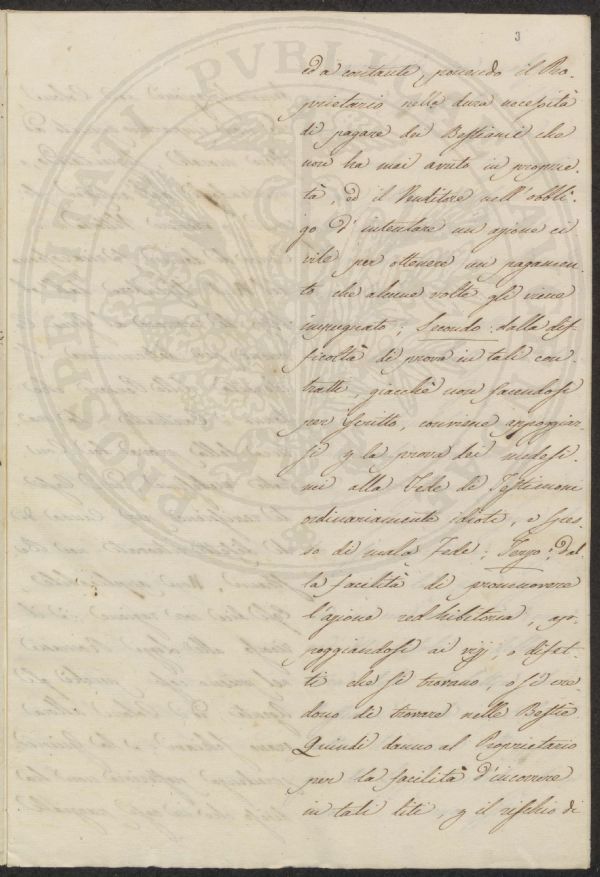 3
ed a contante, ponendo il Pro-
prietario nella dura necessità
di pagare dei Bestiami che
non ha mai avuto in proprie-
tà, ed il Venditore nell'obbli-
go d'intentare un'azione ci
vile per ottenere un pagamen-
to che alcune volte gli viene
impugnato; Secondo: dalla dif-
ficoltà di prova in tali con-
tratti, giacchè non facendosi
per scritto, conviene appoggiar-
si p la prova dei medesi-
mi alla Fede di Testimoni
ordinariamente idioti, e spes-
so di mala Fede; Terzo: dal-
la facilità di promuovere
l'azione redhibitoria, ap-
poggiandosi ai vizj, o difet-
ti che si trovano, o si cre-
dono di trovare nelle Bestie.
Quindi danno al Proprietario
per la facilità d'incorrere
in tali liti, p il rischio di
PROSPERITATI PVBLICAE